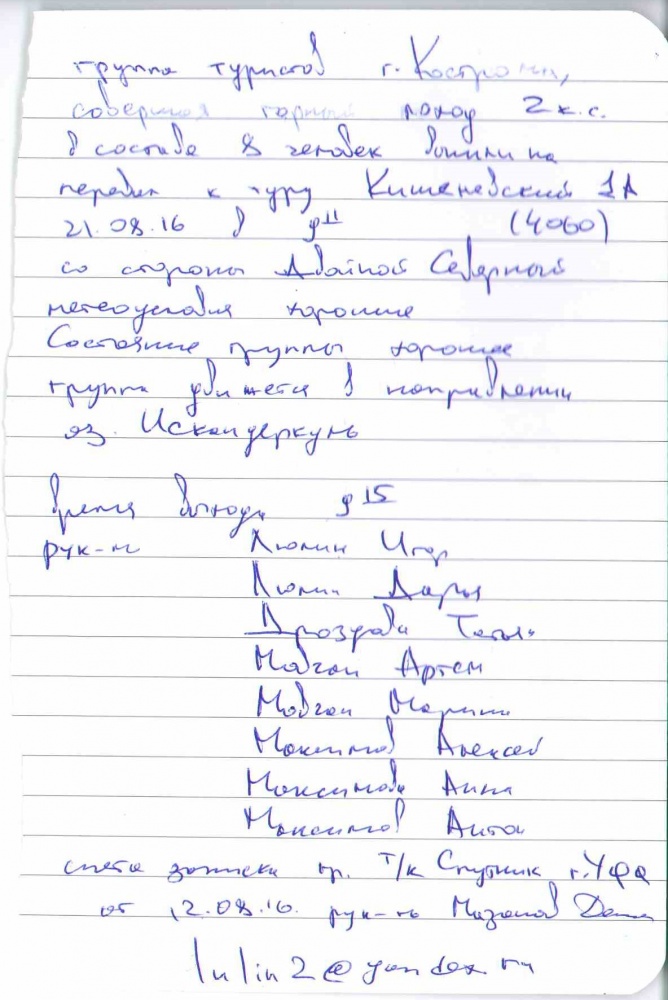 группа туристов г. Костромы,
совершая горный поход 2 к.с.
в составе 8 человек вышли на
перевал к туру Кишеневский 1А
21.08.16 в 9 11 (4060)
со стороны Двойной Северный
метеоусловия хорошие
Состояние группы хорошее
группа движется в направлении
оз. Искандеркуль
время выхода 9 15
рук-ль Люлин Игор
Люлин Дарья
Дроздова Татьян
Мовчан Артем
Мовчан Марина
Максимов Алексей
Максимова Анна
Максимов Антон
снята записка гр. т/к Спутник г. Уфа
от 12.08.16. рук-ль
lulin2@yandex.ru